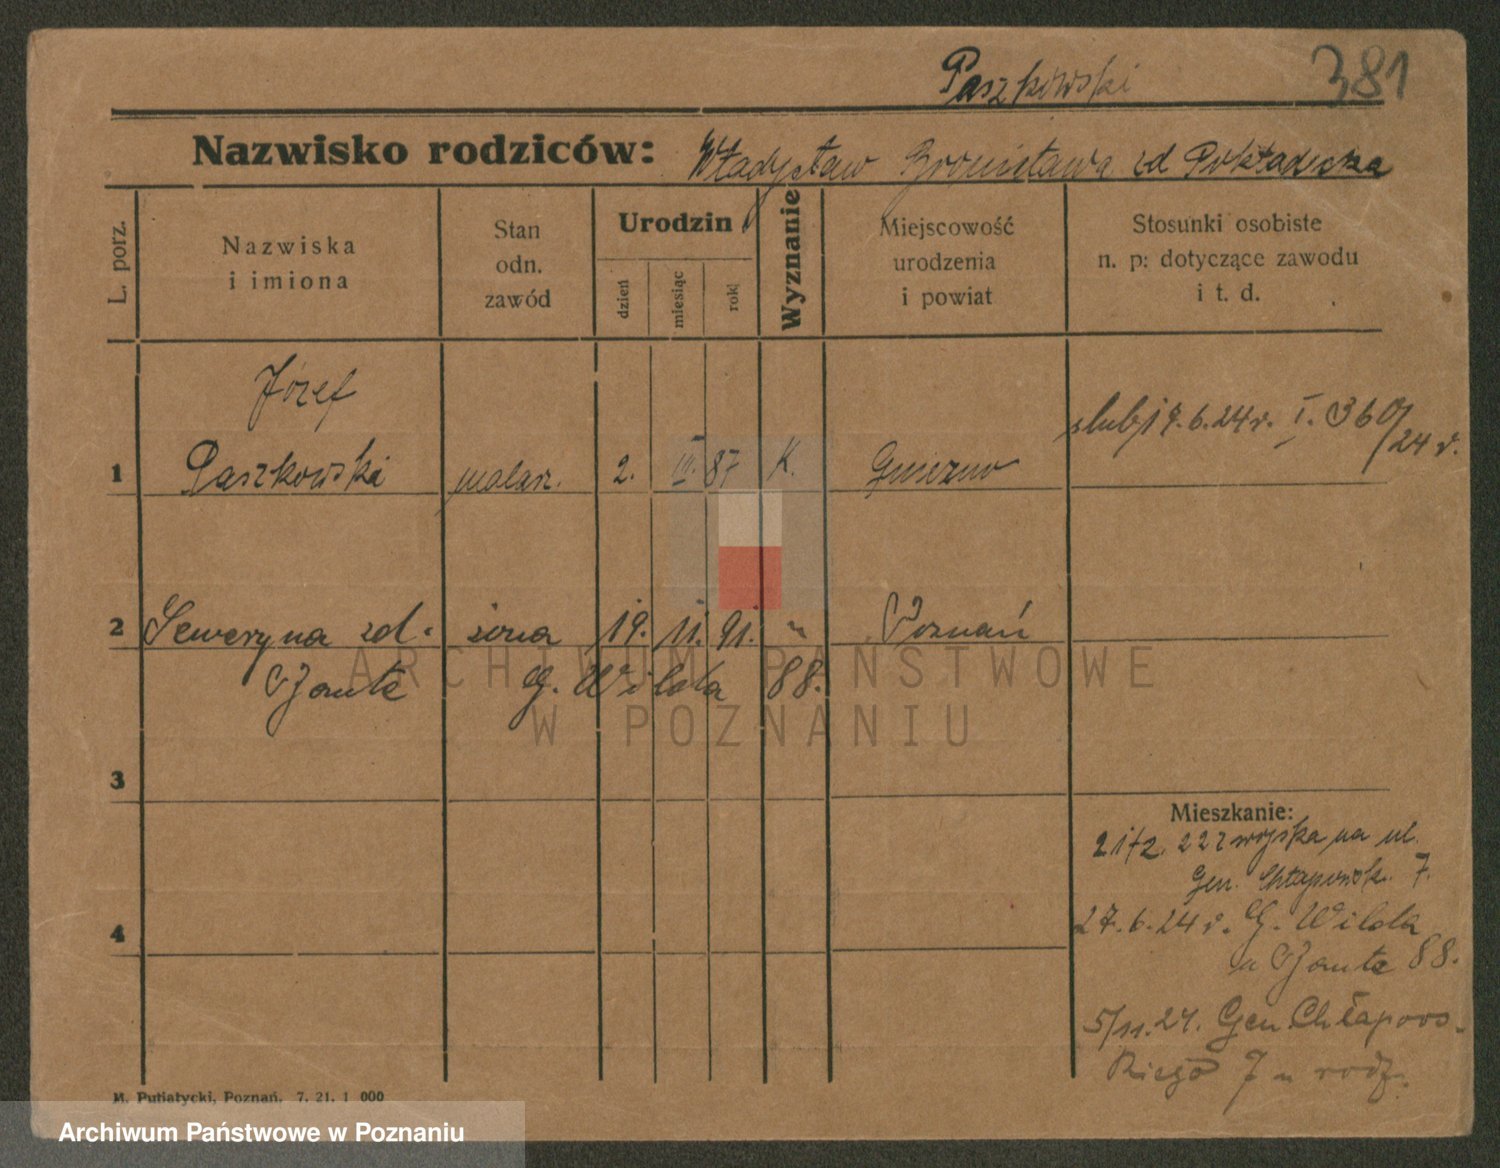 Paszkowski 381
Nazwisko rodziców: Władysław Bronisława zd
L. porz.
Nazwiska
i imiona
Stan
odn.
zawód
Urodzin
dzień
miesiąc
rok
Wyznanie
Miejscowość
urodzenia
i powiat
Stosunki osobiste
n. p: dotyczące zawodu
i t. d.
Józef
ślub 19.6.24 r. I. 360/24 r.
1 Paszkowski malarz. 2. III. 87 K. Gniezno
2 Seweryna zd. żona 19. 11. 91. " Poznań
Jante G. Wilda 88.
ARCHIWUM PAŃSTWOWE
W POZNANIU
3
Mieszkanie:
z wojska na ul.
Gen. Chłapowsk. 7.
4
27.6.24 r. G. Wilda
u Jante 88.
5/11.24. Gen Chłapows-
kiego 7 u rodz.
M. Putiatycki, Poznań. 7. 21. 1 000
Archiwum Państwowe w Poznaniu